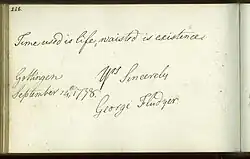 226.
Time used is life, waisted is existence
Gottingen
Yrs Sincerely
September 14th 1798.
George Fludyer